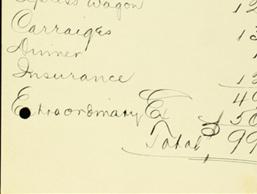 Express Wagon 12
Carraiges 13
Dinner 1
Insurance 12
Extraordinary Ex 40
Total $ 99